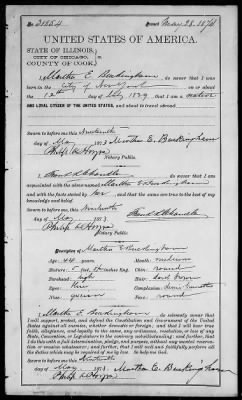 UNITED STATES OF AMERICA.
STATE OF ILLINOIS,
CITY OF CHICAGO,
COUNTY OF COOK,
I, Martha E Buckingham, do swear that I was born
in the City of New York on or about
the 12th day of July 1829, that I am a native
AND LOYAL CITIZEN OF THE UNITED STATES, and about to travel abroad.
Sworn to before me this Nineteenth
day of May 1873 Martha E. Buckingham
Philip A Hoyne
Notary Public.
do swear that I am
acquainted with the above named Martha E Buckingham
and with the facts stated by her, and that the same are true to the best of my
knowledge and belief.
Sworn to before me this Nineteenth
day of May 1873
Philip A Hoyne
Notary Public.
Description of Martha E Buckingham
Age: 44 years
Mouth: medium
Stature: Feet Inches Eng.
Chin: round
Forehead: high
Hair:
Eyes: Blue
Complexion:
Nose:
Face: round
I, Martha E Buckingham, do solemnly swear that I
will support, protect, and defend the Constitution and Government of the United
States against all enemies, whether domestic or foreign, and that I will bear true
faith, allegiance, and loyalty to the same, any ordinance, resolution, or law of any
State, Convention, or Legislature to the contrary notwithstanding; and further, that I
do this with a full determination, pledge, and purpose, without any mental reservation
or evasion whatsoever; and further, that I will well and faithfully perform all
the duties which may be required of me by law. So help me God.
Sworn to before me this
day of May 1873 Martha E. Buckingham
Philip A Hoyne